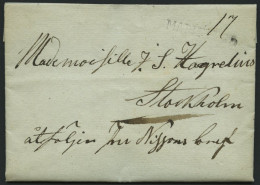 17
Mademoiselle J. S. Hagrelius
Stockholm
åtföljer Fru Nissens bref